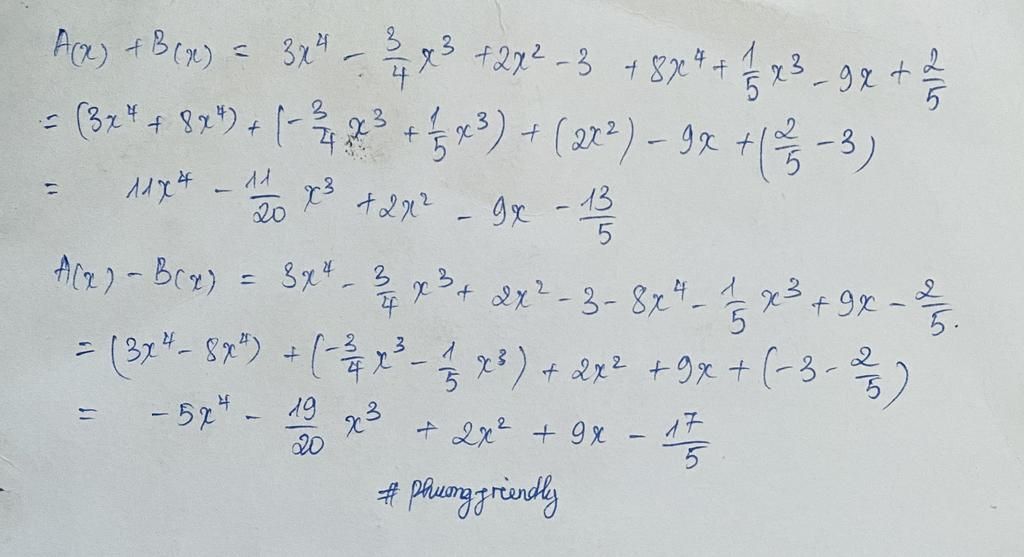 A(x) + B(x) = 3x⁴ - 3/4 x³ + 2x² - 3 + 8x⁴ + 1/5 x³ - 9x + 2/5
= (3x⁴ + 8x⁴) + (-3/4 x³ + 1/5 x³) + (2x²) - 9x + (2/5 - 3)
= 11x⁴ - 11/20 x³ + 2x² - 9x - 13/5
A(x) - B(x) = 3x⁴ - 3/4 x³ + 2x² - 3 - 8x⁴ - 1/5 x³ + 9x - 2/5.
= (3x⁴ - 8x⁴) + (-3/4 x³ - 1/5 x³) + 2x² + 9x + (-3 - 2/5)
= -5x⁴ - 19/20 x³ + 2x² + 9x - 17/5
# phuongfriendly